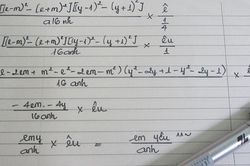 [(e-m)² - (e+m)²][(y-1)² - (y+1)²] / a16nh × ê / 1/4
[(e-m)² - (e+m)²][(y-1)² - (y+1)²] / 16anh × êu / 1
(e² - 2em + m² - e² - 2em - m²)(y² - 2y + 1 - y² - 2y - 1) / 16anh ×
-4em . -4y / 16anh × êu
emy / anh × êu = em yêu / anh